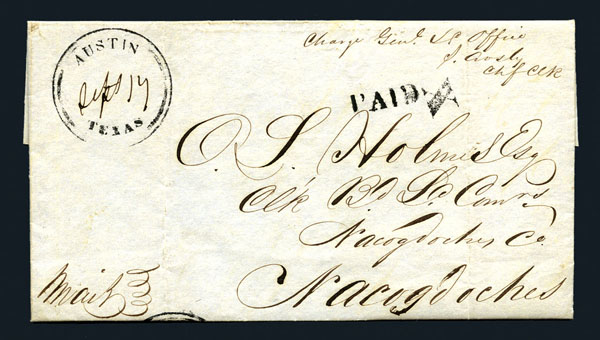 AUSTIN
Sept 17
TEXAS
Charge Genl. Ld Office
S. Crosby
Chf Clk
PAID
O. L. Holmes Esq
Clk Bd Ld Comrs
Nacogdoches Co
Nacogdoches
Mail